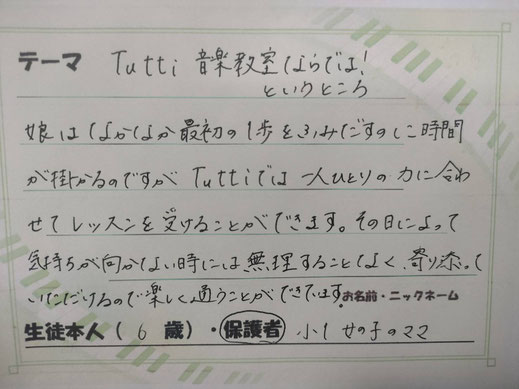 テーマ Tutti 音楽教室ならでは!
というところ
娘はなかなか最初の1歩をふみだすのに時間
が掛かるのですが Tuttiでは一人ひとりの力に合わ
せてレッスンを受けることができます。その日によって
気持ちが向かない時には無理することなく、寄り添って
いただけるので楽しく通うことができています。お名前・ニックネーム
生徒本人(6 歳)・保護者 小1女の子のママ